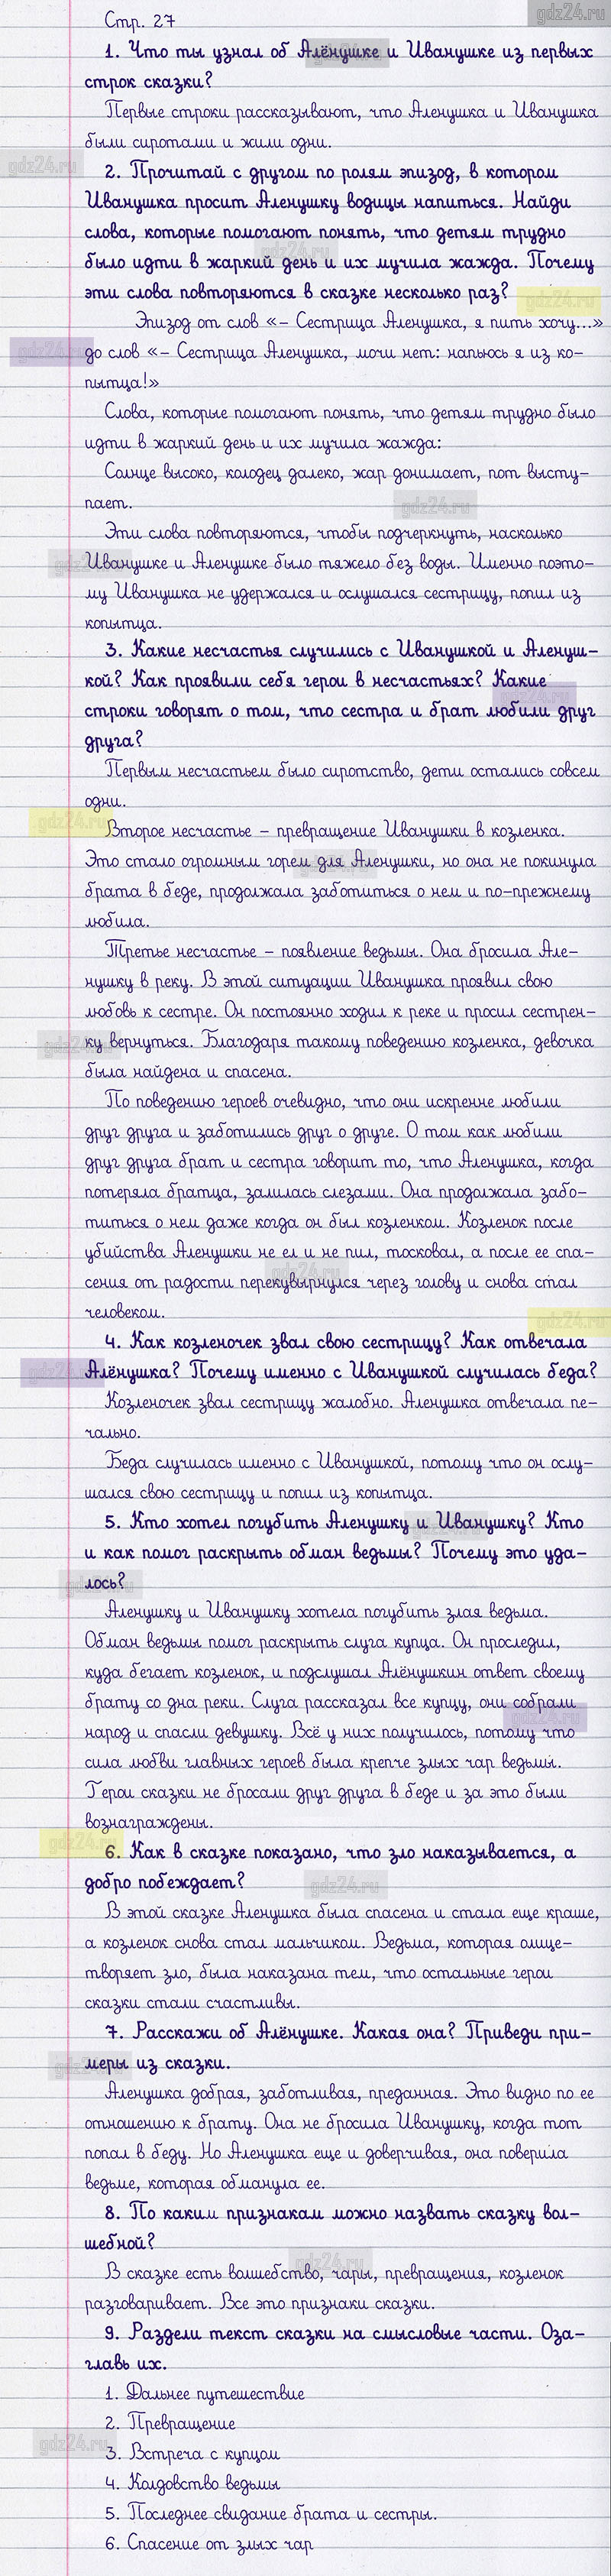 gdz24.ru
Стр. 27
1. Что ты узнал об Алёнушке и Иванушке из первых
строк сказки?
Первые строки рассказывают, что Аленушка и Иванушка
были сиротами и жили одни.
gdz24.ru
2. Прочитай с другом по ролям эпизод, в котором
Иванушка просит Аленушку водицы напиться. Найди
слова, которые помогают понять, что детям трудно
gdz24.ru
было идти в жаркий день и их мучила жажда. Почему
эти слова повторяются в сказке несколько раз?
gdz24.ru
Эпизод от слов «– Сестрица Аленушка, я пить хочу...»
gdz24.ru
до слов «– Сестрица Аленушка, мочи нет: напьюсь я из ко-
пытца!»
Слова, которые помогают понять, что детям трудно было
идти в жаркий день и их мучила жажда:
Солнце высоко, колодец далеко, жар донимает, пот высту-
пает.
gdz24.ru
Эти слова повторяются, чтобы подчеркнуть, насколько
gdz24.ru
Иванушке и Аленушке было тяжело без воды. Именно поэто-
му Иванушка не удержался и ослушался сестрицу, попил из
копытца.
3. Какие несчастья случились с Иванушкой и Аленуш-
кой? Как проявили себя герои в несчастьях? Какие
gdz24.ru
строки говорят о том, что сестра и брат любили друг
друга?
Первым несчастьем было сиротство, дети остались совсем
одни.
gdz24.ru
Второе несчастье – превращение Иванушки в козленка.
Это стало огромным горем для Аленушки, но она не покинула
gdz24.ru
брата в беде, продолжала заботиться о нем и по-прежнему
любила.
Третье несчастье – появление ведьмы. Она бросила Але-
нушку в реку. В этой ситуации Иванушка проявил свою
любовь к сестре. Он постоянно ходил к реке и просил сестрен-
gdz24.ru
ку вернуться. Благодаря такому поведению козленка, девочка
была найдена и спасена.
По поведению героев очевидно, что они искренне любили
друг друга и заботились друг о друге. О том как любили
друг друга брат и сестра говорит то, что Аленушка, когда
потеряла братца, залилась слезами. Она продолжала забо-
титься о нем даже когда он был козленком. Козленок после
убийства Аленушки не ел и не пил, тосковал, а после ее спа-
gdz24.ru
сения от радости перекувырнулся через голову и снова стал
человеком.
gdz24.ru
4. Как козленочек звал свою сестрицу? Как отвечала
gdz24.ru
Алёнушка? Почему именно с Иванушкой случилась беда?
Козленочек звал сестрицу жалобно. Аленушка отвечала пе-
чально.
Беда случилась именно с Иванушкой, потому что он ослу-
шался свою сестрицу и попил из копытца.
5. Кто хотел погубить Аленушку и Иванушку? Кто
gdz24.ru
и как помог раскрыть обман ведьмы? Почему это уда-
лось?
gdz24.ru
Аленушку и Иванушку хотела погубить злая ведьма.
Обман ведьмы помог раскрыть слуга купца. Он проследил,
куда бегает козленок, и подслушал Алёнушкин ответ своему
брату со дна реки. Слуга рассказал все купцу, они собрали
gdz24.ru
народ и спасли девушку. Всё у них получилось, потому что
сила любви главных героев была крепче злых чар ведьмы.
Герои сказки не бросали друг друга в беде и за это были
вознаграждены.
gdz24.ru
6. Как в сказке показано, что зло наказывается, а
добро побеждает?
gdz24.ru
В этой сказке Аленушка была спасена и стала еще краше,
а козленок снова стал мальчиком. Ведьма, которая олице-
творяет зло, была наказана тем, что остальные герои
сказки стали счастливы.
7. Расскажи об Алёнушке. Какая она? Приведи при-
меры из сказки.
gdz24.ru
Аленушка добрая, заботливая, преданная. Это видно по ее
отношению к брату. Она не бросила Иванушку, когда тот
попал в беду. Но Аленушка еще и доверчивая, она поверила
ведьме, которая обманула ее.
8. По каким признакам можно назвать сказку вол-
шебной?
gdz24.ru
В сказке есть волшебство, чары, превращения, козленок
разговаривает. Все это признаки сказки.
9. Раздели текст сказки на смысловые части. Оза-
главь их.
1. Дальнее путешествие
2. Превращение
gdz24.ru
3. Встреча с купцом
4. Колдовство ведьмы
5. Последнее свидание брата и сестры.
6. Спасение от злых чар